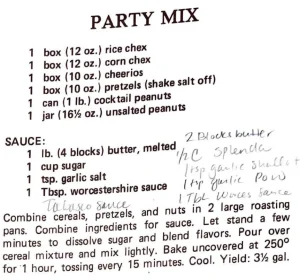 PARTY MIX
1 box (12 oz.) rice chex
1 box (12 oz.) corn chex
1 box (10 oz.) cheerios
1 box (10 oz.) pretzels (shake salt off)
1 can (1 lb.) cocktail peanuts
1 jar (16½ oz.) unsalted peanuts
SAUCE:
1 lb. (4 blocks) butter, melted
1 cup sugar
1 tsp. garlic salt
1 Tbsp. worcestershire sauce
2 Blocks butter
½ C Splenda
1 tsp garlic
1 tsp garlic Pow
1 Tbl Sauce
Tabasco Sauce
Combine cereals, pretzels, and nuts in 2 large roasting
pans. Combine ingredients for sauce. Let stand a few
minutes to dissolve sugar and blend flavors. Pour over
cereal mixture and mix lightly. Bake uncovered at 250°
for 1 hour, tossing every 15 minutes. Cool. Yield: 3½ gal.